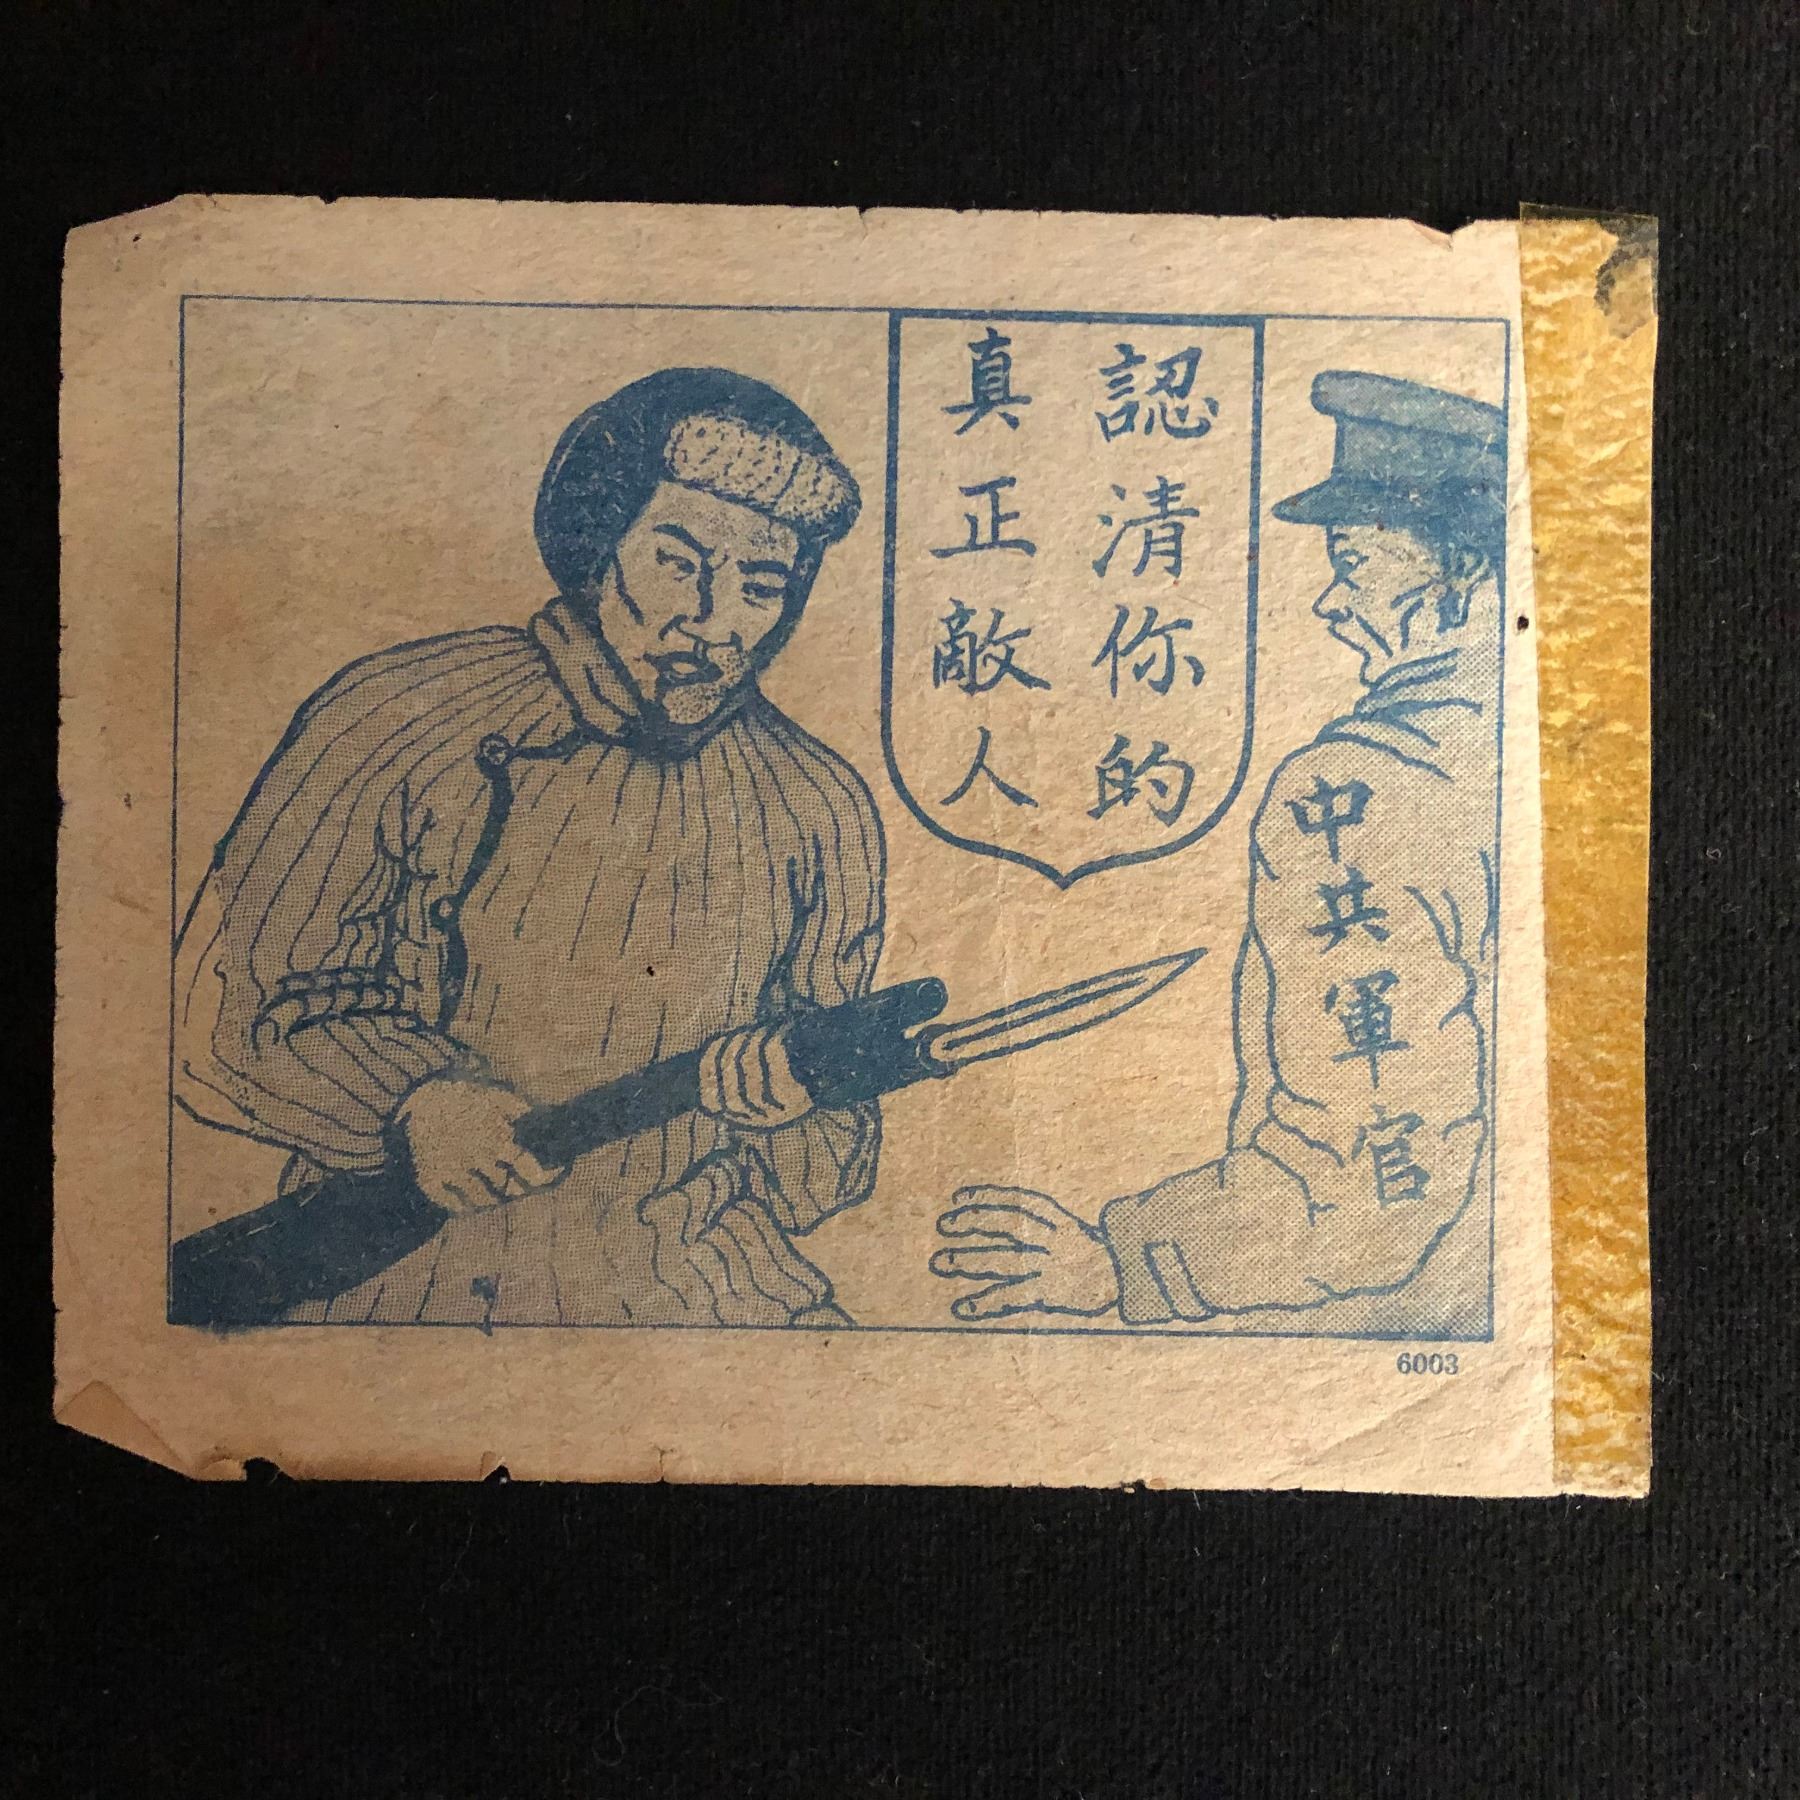 認清你的
真正敵人
中共軍官
6003